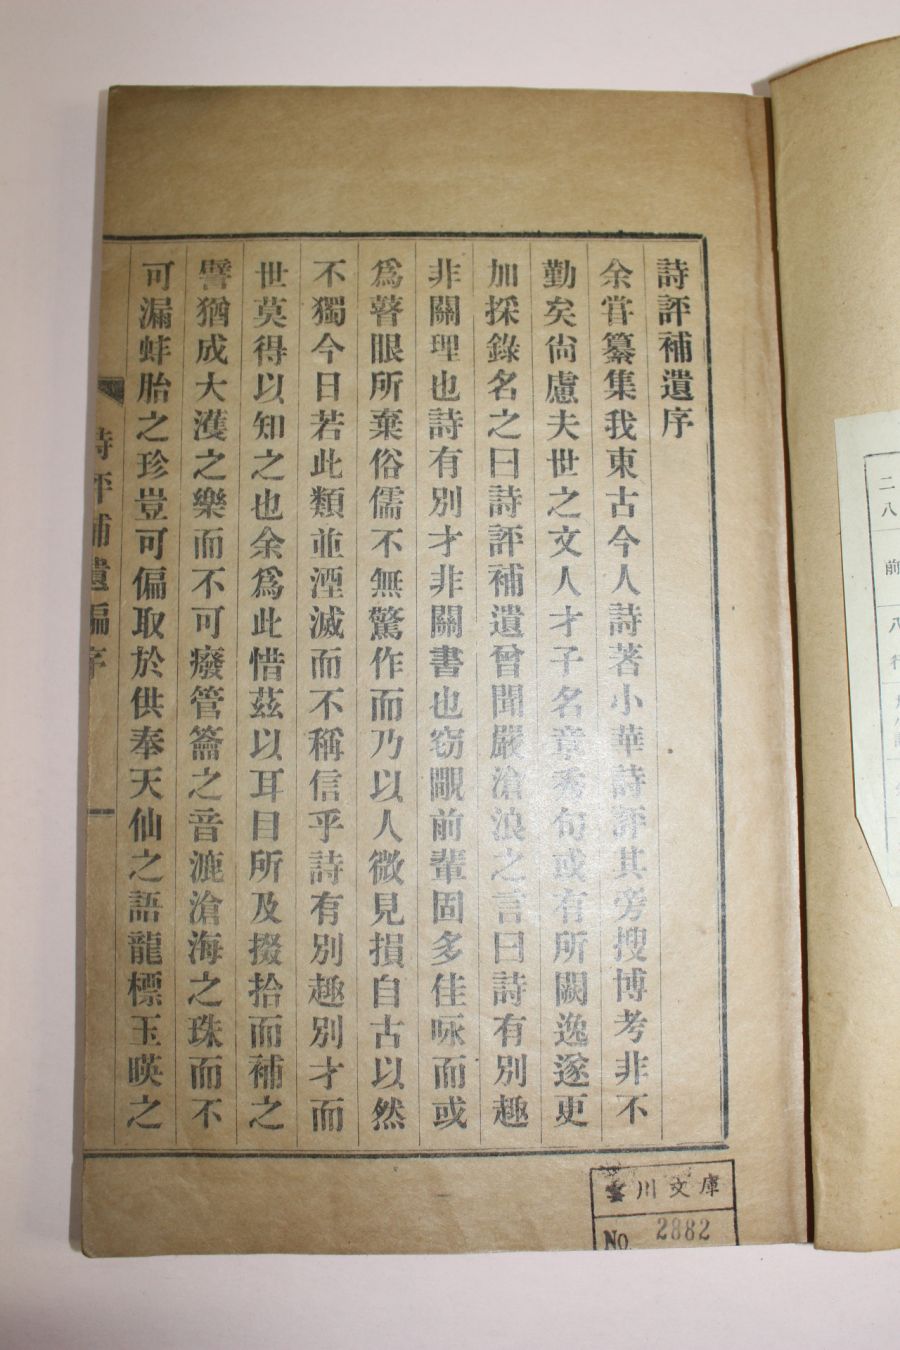 詩評補遺序
余嘗纂集我東古今人詩著小華詩評其旁搜博考非不
勤矣尙慮夫世之文人才子名章秀句或有所闕逸遂更
加採錄名之曰詩評補遺曾聞嚴滄浪之言曰詩有別趣
非關理也詩有別才非關書也窃覸前輩固多佳咏而或
爲瞽眼所棄俗儒不無驚作而乃以人微見損自古以然
不獨今日若此類並湮滅而不稱信乎詩有別趣別才而
世莫得以知之也余爲此惜茲以耳目所及掇拾而補之
譬猶成大濩之樂而不可癈管籥之音漉滄海之珠而不
可漏蚌胎之珍豈可偏取於供奉天仙之語龍標玉暎之
詩評補遺編序
一
二八
前
八
川文庫
No. 2882